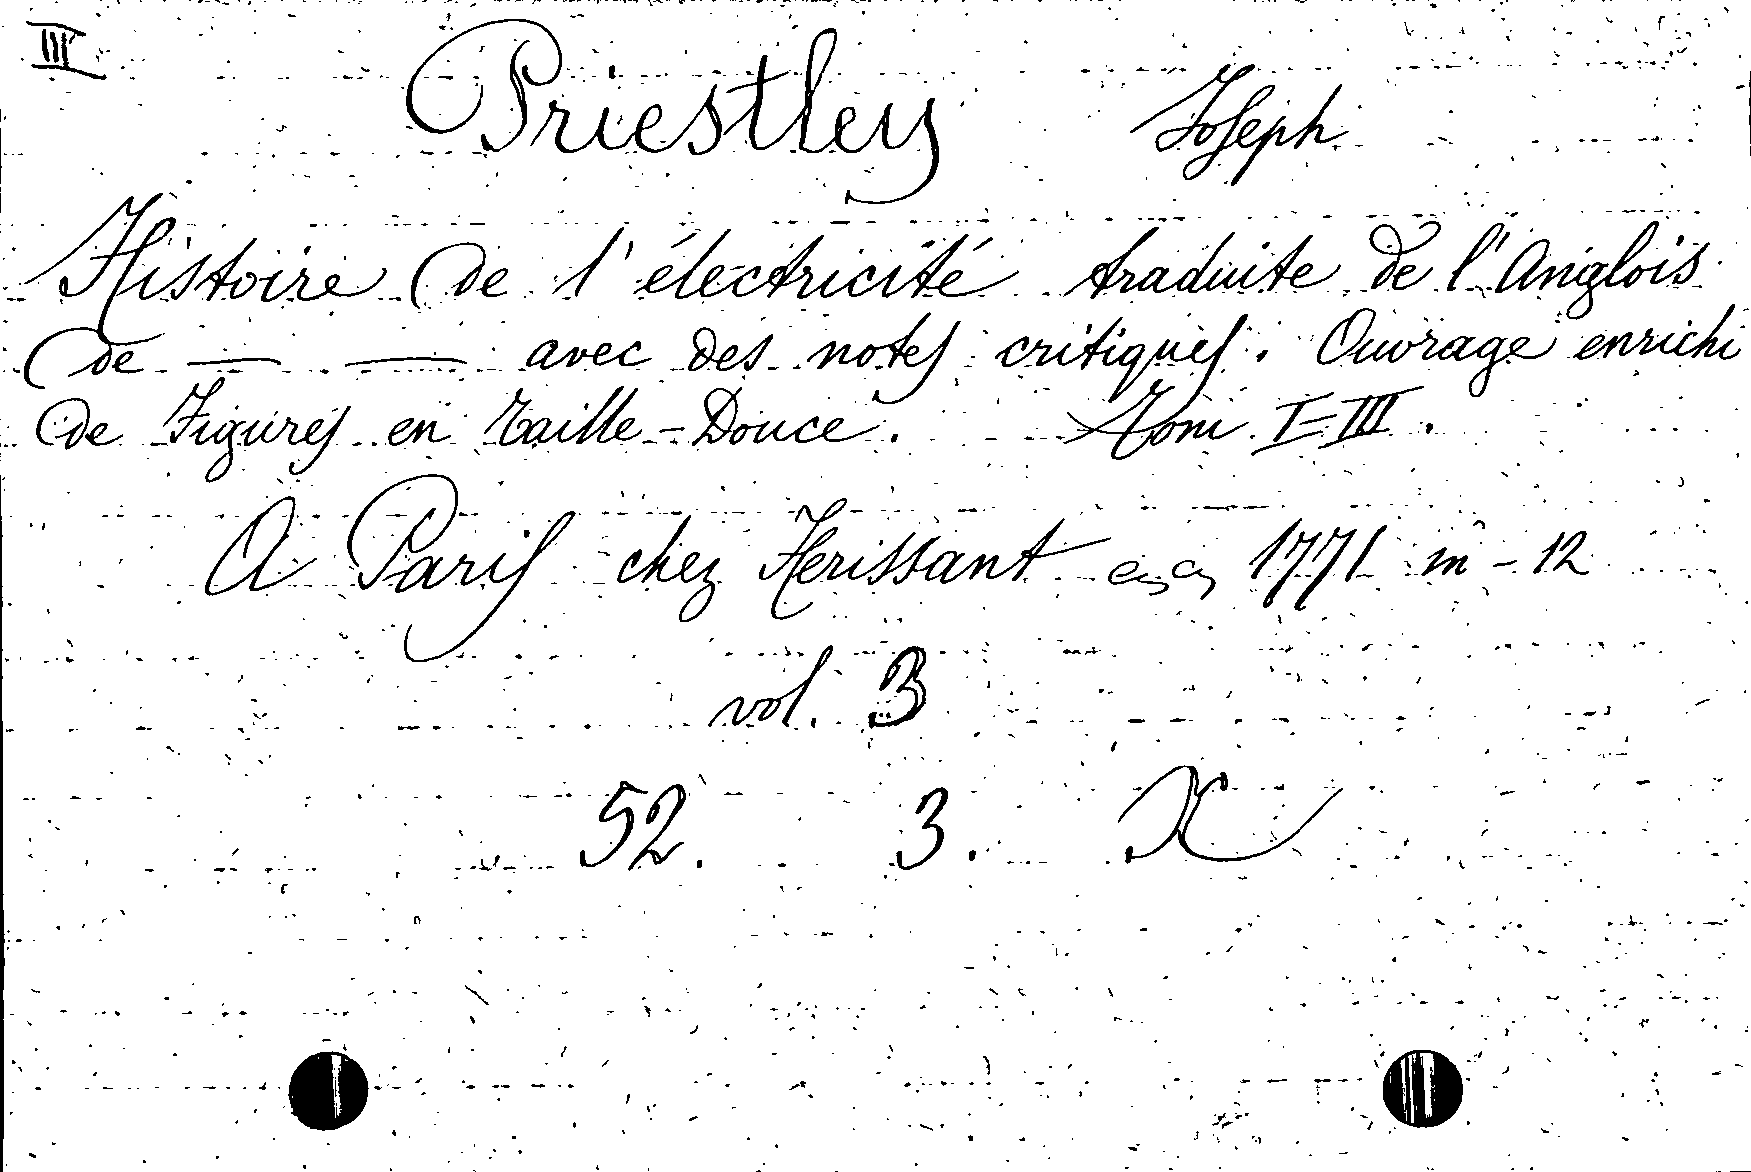 III
Priestley Joseph
Histoire de l'électricité traduite de l'Anglois
de — — avec des notes critiques. Ouvrage enrichi
de Figures en Taille-Douce. Tom I-III.
A Paris chez Herissant 1771 in-12
vol. 3
52. 3. X